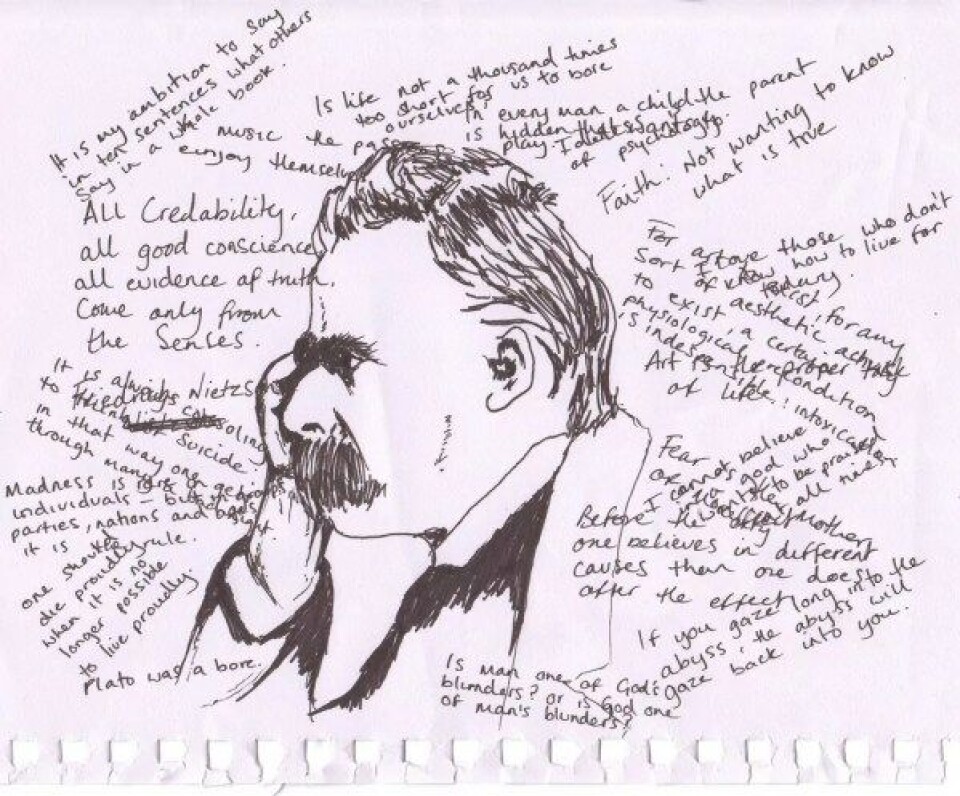 It is my ambition to say
in ten sentences what others
say in a whole book.
Is life not a thousand times
too short for us to bore
ourselves?
In every man a child
is hidden that wants to
play.
the parent
of
Faith: Not wanting to know
what is true
music the
enjoy themselves
All Credability,
all good conscience
all evidence of truth.
Come only from
the Senses.
For art to exist, for any
sort of aesthetic activity
to exist, a certain
physiological precondition
is indespensible: intoxication
I love those who don't
know how to live for
today.
Art is the proper task
of life.
It is always
to think of
in that way one gets
through many
Friedrich Nietzsche
Suicide:
Madness is rare in
individuals – but in groups
parties, nations and
it is rule.
one should
die proudly
when it is no
longer possible
to live proudly.
Plato was a bore.
Fear
mother
I cannot believe
in a god who
wants to be praised
all times
Before the effect
one believes in different
causes than one does
after the effect
If you gaze long into the
abyss, the abyss will
gaze back into you.
Is man one of God's
blunders? or is God one
of man's blunders?